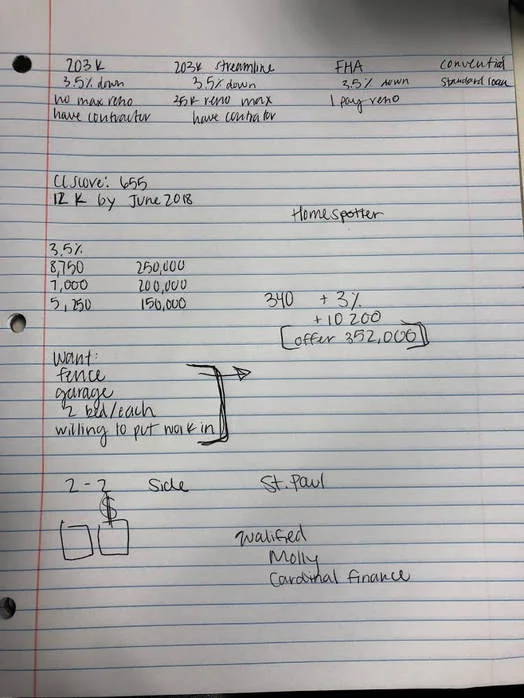 203K 203K streamline FHA convential
3.5% down 3.5% down 3.5% down standard loan
no max reno 35K reno max 1 pay reno
have contractor have contrator
CC score: 655
12K by June 2018
Homespotter
3.5%
8,750 250,000
7,000 200,000
5,250 150,000
340 + 3%
+10 200
offer 352,000
Want:
fence
garage
2 bed/each
willing to put work in
2-2 side St. Paul
$
qualified
Molly
Cardinal finance